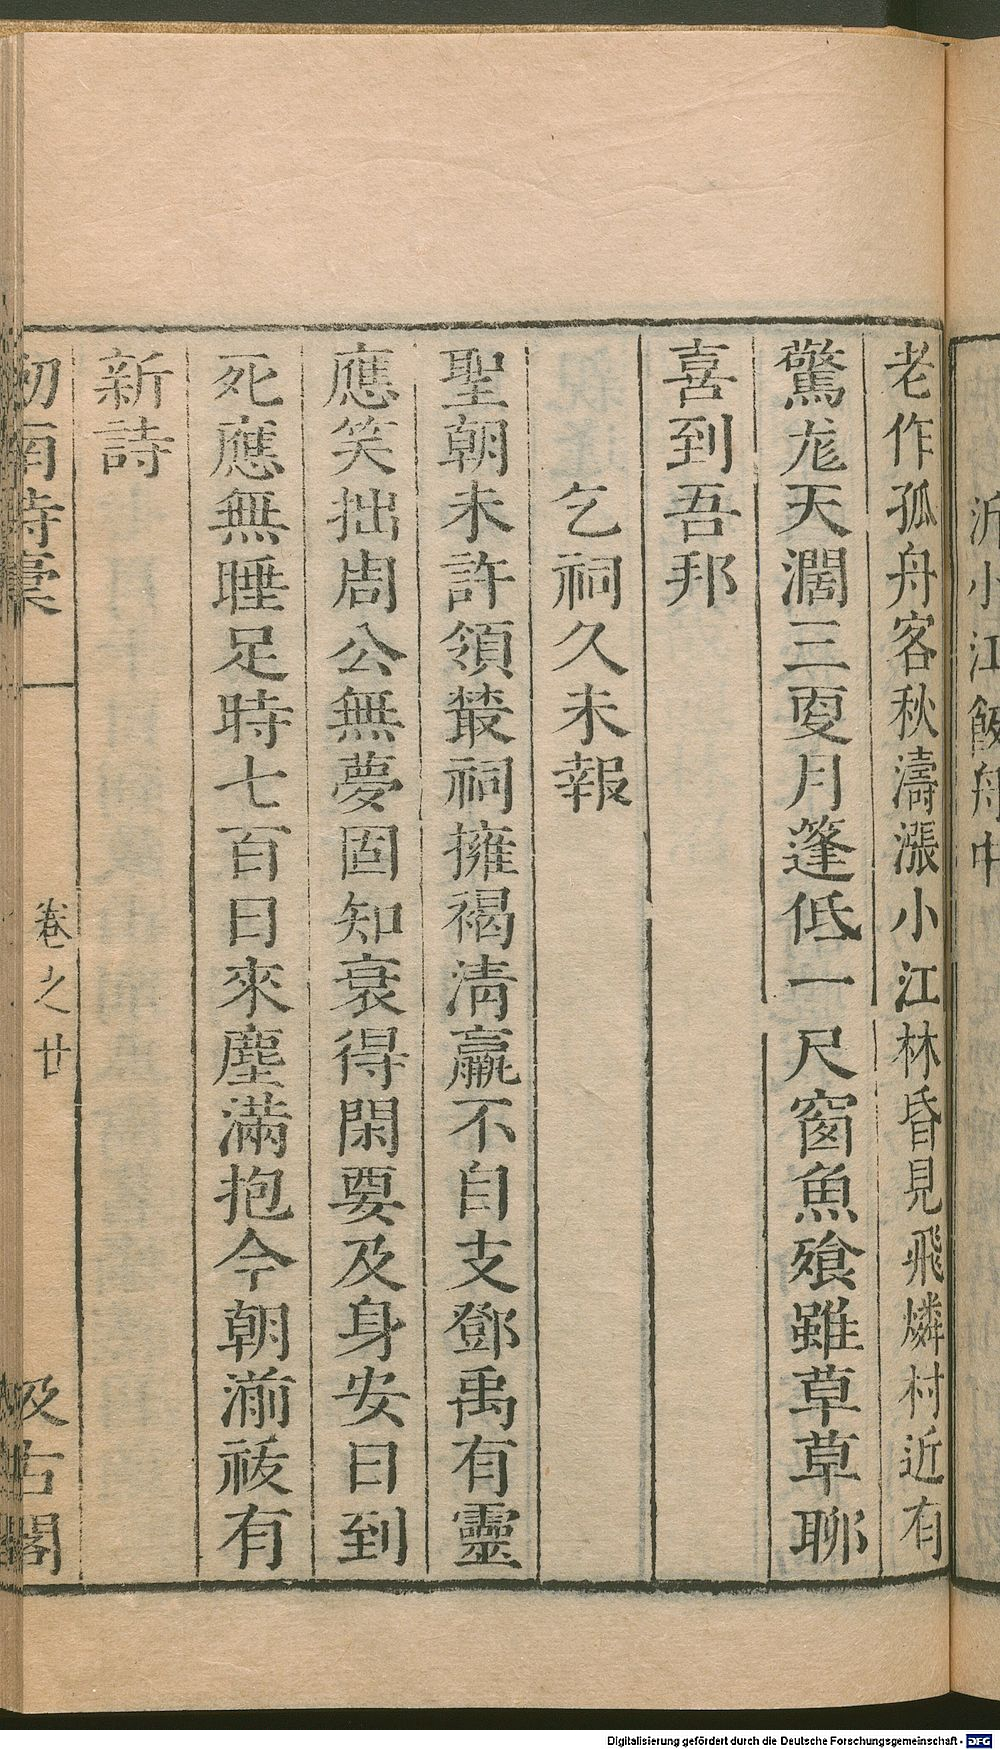 泝小江飯舟中
老作孤舟客秋濤漲小江林昏見飛燐村近有
驚尨天濶三更月篷低一尺窗魚飱雖草草聊
喜到吾邦
乞祠久未報
聖朝未許領叢祠擁褐清羸不自支鄧禹有靈
應笑拙周公無夢固知衰得閑要及身安日到
死應無睡足時七百日來塵滿抱今朝湔祓有
新詩
劒南詩稾
卷之廿
汲古閣
Digitalisierung gefördert durch die Deutsche Forschungsgemeinschaft - DFG